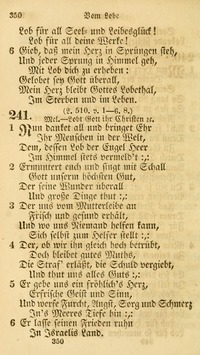 350 Vom Lobe
Lob für all Seel- und Leibesglück!
Lob für all deine Werke!
6 Gieb, daß mein Herz in Sprüngen steh,
Und jeder Sprung in Himmel geh,
Mit Lob dich zu erheben:
Gelobet sey Gott überall,
Mein Herz bleibt Gottes Lobethal,
Im Sterben und im Leben.
(2, 510, v. 1—6, 8.)
241. Mel.—Lobt Gott ihr Christen ec.
1 Nun danket all und bringet Ehr
Ihr Menschen in der Welt,
Dem, dessen Lob der Engel Heer
Im Himmel stets vermeld't :,:
2 Ermuntert euch und singt mit Schall
Gott unserm höchsten Gut,
Der seine Wunder überall
Und große Dinge thut :,:
3 Der uns vom Mutterleibe an
Frisch und gesund erhält,
Und wo uns Niemand helfen kann,
Sich selbst zum Helfer stellt :,:
4 Der, ob wir ihn gleich hoch betrübt,
Doch bleibet gutes Muths,
Die Straf' erläßt, die Schuld vergiebt,
Und thut uns alles Guts :,:
5 Er gebe uns ein fröhlich's Herz,
Erfrische Geist und Sinn,
Und werfe Furcht, Angst, Sorg und Schmerz
In's Meeres Tiefe hin :,:
6 Er lasse seinen Frieden ruhn
In Israelis Land.
350